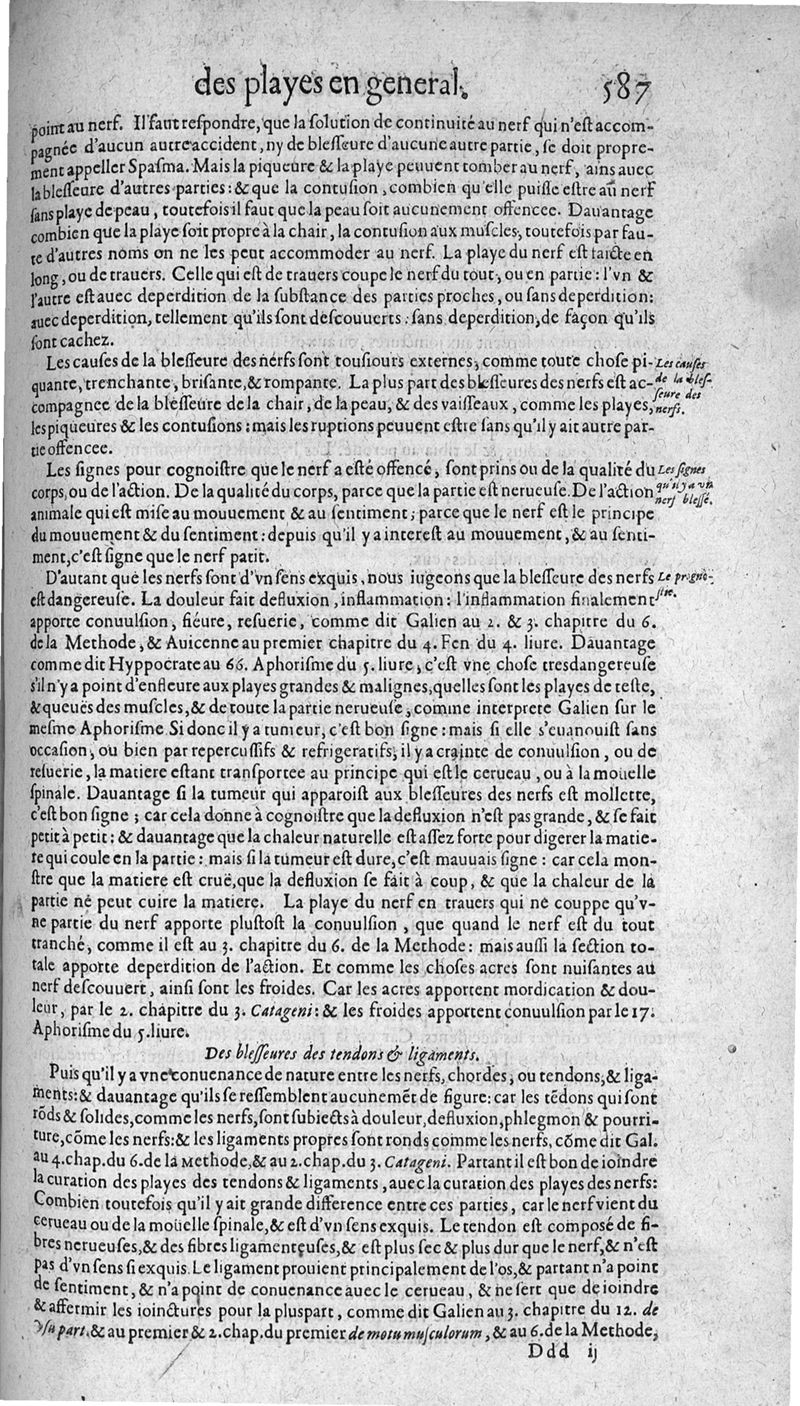 des playes en general. 587
point au nerf. Il faut reſpondre, que la ſolution de continuité au nerf qui n'eſt accom-
pagnée d'aucun autre accident, ny de bleſſeure d'aucune autre partie, ſe doit propre-
ment appeller Spaſma. Mais la piqueure & la playe peuuent tomber au nerf, ains auec
la bleſſeure d'autres parties: & que la contuſion, combien qu'elle puiſſe eſtre au nerf
ſans playe de peau, toutefois il faut que la peau ſoit aucunement offencee. Dauantage
combien que la playe ſoit propre à la chair, la contuſion aux muſcles, toutefois par fau-
te d'autres noms on ne les peut accommoder au nerf. La playe du nerf eſt faicte en
long, ou de trauers. Celle qui eſt de trauers coupe le nerf du tout, ou en partie: l'vn &
l'autre eſt auec deperdition de la ſubſtance des parties proches, ou ſans deperdition:
auec deperdition, tellement qu'ils ſont deſcouuerts: ſans deperdition, de façon qu'ils
ſont cachez.
Les cauſes de la bleſſeure des nerfs ſont touſiours externes, comme toute choſe pi-
Les cauſes
quante, trenchante, briſante, & rompante. La plus part des bleſſeures des nerfs eſt ac-
de la bleſ-
compagnee de la bleſſeure de la chair, de la peau, & des vaiſſeaux, comme les playes,
ſeure des
nerfs.
les piqueures & les contuſions: mais les ruptions peuuent eſtre ſans qu'il y ait autre par-
tie offencee.
Les ſignes pour cognoiſtre que le nerf a eſté offencé, ſont prins ou de la qualité du
Les ſignes
corps, ou de l'action. De la qualité du corps, parce que la partie eſt nerueuſe. De l'action
qu'il y a vn
animale qui eſt miſe au mouuement & au ſentiment; parce que le nerf eſt le principe
nerf bleſſé.
du mouuement & du ſentiment: depuis qu'il y a intereſt au mouuement, & au ſenti-
ment, c'eſt ſigne que le nerf patit.
D'autant que les nerfs ſont d'vn ſens exquis, nous iugeons que la bleſſeure des nerfs
Le progno-
eſt dangereuſe. La douleur fait defluxion, inflammation: l'inflammation finalement
ſtic.
apporte conuulſion, fiéure, reſuerie, comme dit Galien au 2. & 3. chapitre du 6.
de la Methode, & Auicenne au premier chapitre du 4. Fen du 4. liure. Dauantage
comme dit Hyppocrate au 66. Aphoriſme du 5. liure, c'eſt vne choſe tresdangereuſe
s'il n'y a point d'enfleure aux playes grandes & malignes, quelles ſont les playes de teſte,
& queuës des muſcles, & de toute la partie nerueuſe, comme interprete Galien ſur le
meſme Aphoriſme. Si donc il y a tumeur, c'eſt bon ſigne: mais ſi elle s'euanouiſt ſans
occaſion, ou bien par repercuſſifs & refrigeratifs, il y a crainte de conuulſion, ou de
reſuerie, la matiere eſtant tranſportee au principe qui eſt le cerueau, ou à la moüelle
ſpinale. Dauantage ſi la tumeur qui apparoiſt aux bleſſeures des nerfs eſt mollette,
c'eſt bon ſigne; car cela donne à cognoiſtre que la defluxion n'eſt pas grande, & ſe fait
petit à petit: & dauantage que la chaleur naturelle eſt aſſez forte pour digerer la matie-
re qui coule en la partie: mais ſi la tumeur eſt dure, c'eſt mauuais ſigne: car cela mon-
ſtre que la matiere eſt cruë, que la defluxion ſe fait à coup, & que la chaleur de la
partie ne peut cuire la matiere. La playe du nerf en trauers qui ne couppe qu'v-
ne partie du nerf apporte pluſtoſt la conuulſion, que quand le nerf eſt du tout
tranché, comme il eſt au 3. chapitre du 6. de la Methode: mais auſſi la ſection to-
tale apporte deperdition de l'action. Et comme les choſes acres ſont nuiſantes au
nerf deſcouuert, ainſi ſont les froides. Car les acres apportent mordication & dou-
leur, par le 2. chapitre du 3. Catageni: & les froides apportent conuulſion par le 17.
Aphoriſme du 5. liure.
Des bleſſeures des tendons & ligaments.
Puis qu'il y a vne conuenance de nature entre les nerfs, chordes, ou tendons, & liga-
ments: & dauantage qu'ils ſe reſſemblent aucunemẽt de figure: car les tẽdons qui ſont
rõds & ſolides, comme les nerfs, ſont ſubiects à douleur, defluxion, phlegmon & pourri-
ture, cõme les nerfs: & les ligaments propres ſont ronds comme les nerfs, cõme dit Gal.
au 4. chap. du 6. de la Methode, & au 2. chap. du 3. Catageni. Partant il eſt bon de ioindre
la curation des playes des tendons & ligaments, auec la curation des playes des nerfs:
Combien toutefois qu'il y ait grande difference entre ces parties, car le nerf vient du
cerueau ou de la moüelle ſpinale, & eſt d'vn ſens exquis. Le tendon eſt compoſé de fi-
bres nerueuſes, & des fibres ligamenteuſes, & eſt plus ſec & plus dur que le nerf, & n'eſt
pas d'vn ſens ſi exquis. Le ligament prouient principalement de l'os, & partant n'a point
de ſentiment, & n'a point de conuenance auec le cerueau, & ne ſert que de ioindre
& affermir les ioinctures pour la pluspart, comme dit Galien au 3. chapitre du 12. de
vſu part. & au premier & 2. chap. du premier de motu muſculorum, & au 6. de la Methode,
Ddd ij